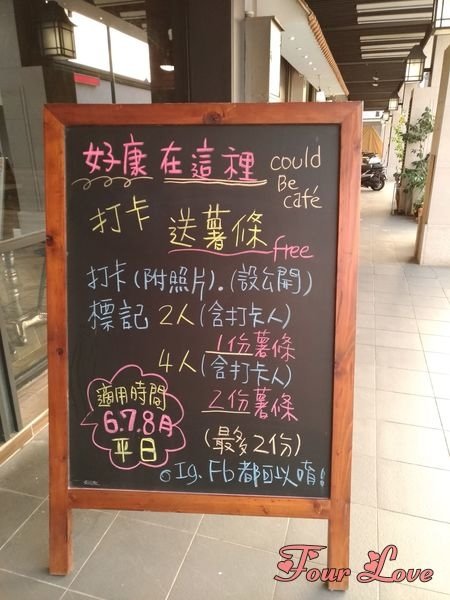 好康在這裡
could
Be
café
打卡
送薯條
free
打卡(附照片).(設公開)
標記2人(含打卡人)
1份薯條
4人(含打卡人)
2份薯條
(最多2份)
適用時間
6.7.8月
平日
Ig.Fb都可以唷!
Four Love